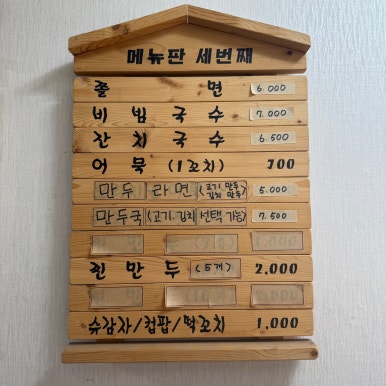 메뉴판 세번째
쫄면 6.000
비빔국수 7.000
잔치국수 6.500
어묵 (1꼬치) 700
만두라면 (고기만두 김치만두) 5.000
만두국 (고기.김치 선택 가능) 7.500
찐만두 (5개) 2,000
슈감자/컵팝/떡꼬치 1,000